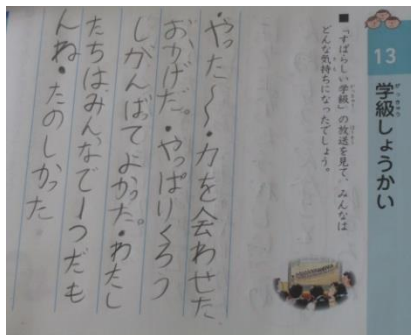 13
学級しょうかい
がっきゅう
■「すばらしい学級」の放送を見て、みんなは
どんな気持ちになったでしょう。
・やった〜〜・力を会わせた
おかげだ。・やっぱりくろう
しがんばってよかった。・わたし
たちはみんなで一つだも
んね・たのしかった